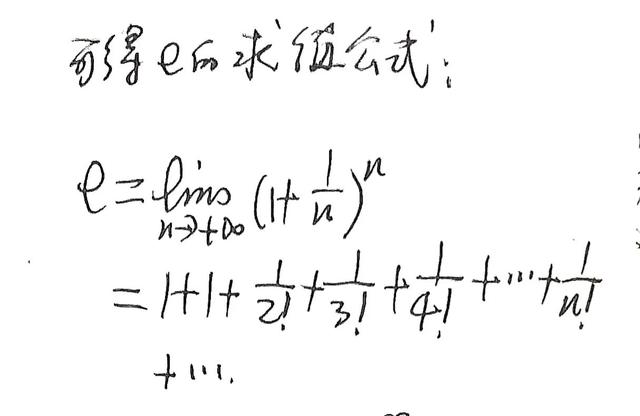 可得e的求值公式:
e = lim (1+1/n)^n
n→+∞
= 1+1+1/2!+1/3!+1/4!+⋯+1/n!
+⋯.